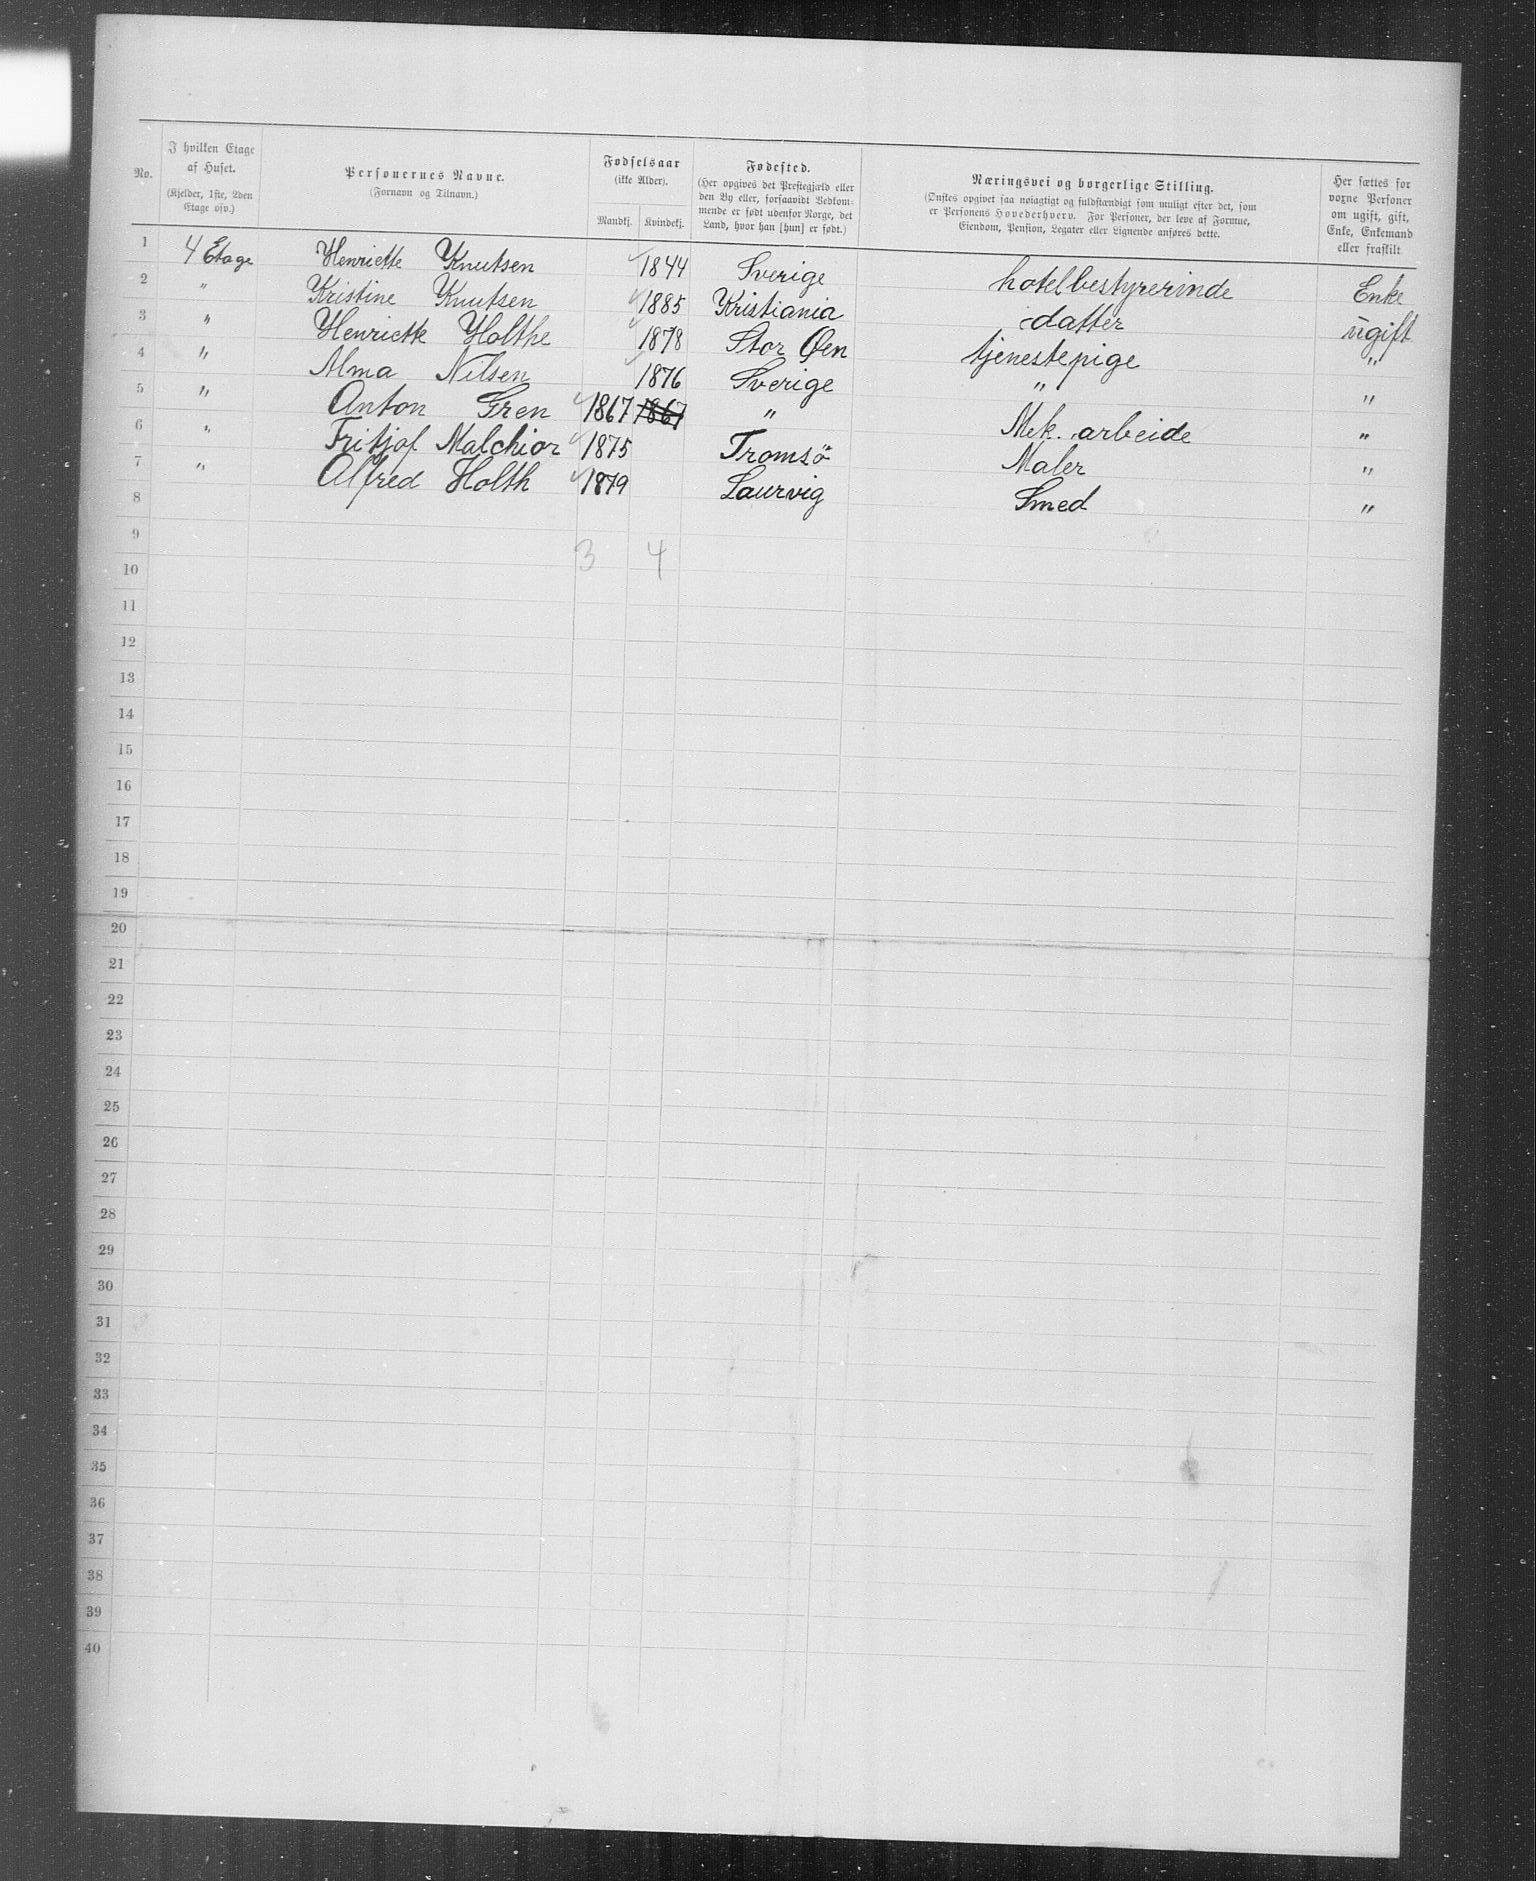 No.
I hvilken Etage af Huset.
(Kjelder, 1ste, 2den Etage osv.)
Personernes Navne.
(Fornavn og Tilnavn.)
Fødselsaar
(ikke Alder).
Mandkj. Kvindekj.
Fødested.
(Her opgives det Prestegjæld eller
den By eller, forsaavidt Vedkom-
mende er født udenfor Norge, det
Land, hvor han [hun] er født.)
Næringsvei og borgerlige Stilling.
(Ønskes opgivet saa nøiagtigt og fuldstændigt som muligt efter det, som
er Personens Hovederhverv. For Personer, der leve af Formue,
Eiendom, Pension, Legater eller Lignende anføres dette.
Her sættes for
voxne Personer
om ugift, gift,
Enke, Enkemand
eller fraskilt
1 4 Etage Henriette Knutsen 1844 Sverige hotelbestyrerinde Enke
2 " Kristine Knutsen 1885 Kristiania datter ugift
3 " Henriette Holthe 1878 Stor Øen tjenestepige "
4 " Alma Nilsen 1876 Sverige " "
5 " Anton Gren 1867 1867 " Mek. arbeide "
6 " Fritjof Malchior 1875 Tromsö Maler "
7 " Alfred Holth 1879 Laurvig Smed "
8
9
3 4
10
11
12
13
14
15
16
17
18
19
20
21
22
23
24
25
26
27
28
29
30
31
32
33
34
35
36
37
38
39
40